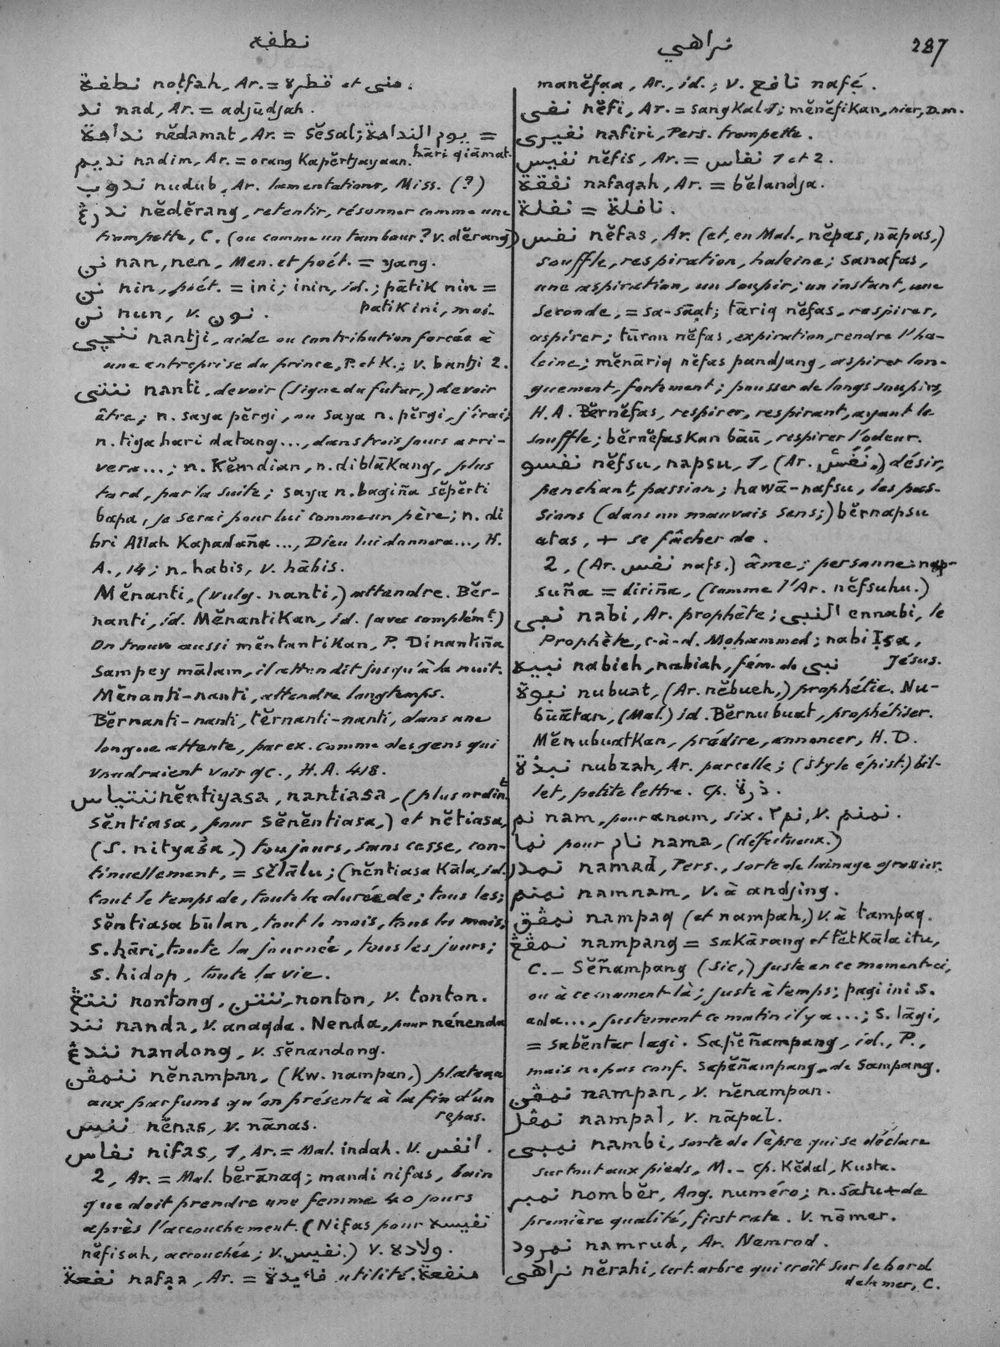 نطفة
نراهي
287
نطفة noṭfah, Ar. = قطرة et منى.
ند nad, Ar. = adjūdjah.
ندامة nĕdamat, Ar. = sĕsal; يوم الندامة =
نديم nadim, Ar. = orang kapĕrtjayaan. hāri qiāmat.
ندوب nudub, Ar. lamentations, Miss. (?)
ندرڠ nĕdĕrang, retentir, résonner comme une
trompette, C. (ou comme un tambour? v. dĕrang)
نن nan, nen, Men. et poét. = yang.
نن nin, poét. = ini; inin, id.; pātik nin =
patik ini, moi.
نن nun, v. نون.
ننچي nantji, aide ou contribution forcée à
une entreprise du prince, P. et K.; v. bantji 2.
ننتي nanti, devoir (signe du futur,) devoir
être; n. saya pĕrgi, ou saya n. pĕrgi, j'irai;
n. tiga hari datang..., dans trois jours arri-
vera...; n. kĕmdian, n. diblākang, plus
tard, par la suite; saya n. bagiña sĕpĕrti
bapa, je serai pour lui comme un père; n. di
bri Allah kapadaña..., Dieu lui donnera..., H.
A., 14; n. habis, v. hābis.
Mĕnanti, (vulg. nanti,) attendre. Bĕr-
nanti, id. Mĕnantikan, id. (avec complémt.)
On trouve aussi mĕntantikan, P. Dinantiña
sampey mālam, il attendit jusqu'à la nuit.
Mĕnanti-nanti, attendre longtemps.
Bĕrnanti-nanti, tĕrnanti-nanti, dans une
longue attente, par ex. comme des gens qui
voudraient voir qc., H.A. 418.
ننتياس nĕntiyasa, nantiasa, (plus ordint.
sĕntiasa, pour sĕnĕntiasa,) et nĕtiasa,
(S. nityaśa,) toujours, sans cesse, con-
tinuellement, = sĕlālu; (nĕntiasa kāla, id.
tout le temps de, toute la durée de; tous les;
sĕntiasa būlan, tout le mois, tous les mois;
s. hāri, toute la journée, tous les jours;
s. hidop, toute la vie.
ننتڠ nontong, ننتن nonton, v. tonton.
نند nanda, v. anaqda. Nenda, pour nénenda
نندڠ nandong, v. sĕnandong.
ننمڤن nĕnampan, (Kw. nampan,) plateau
aux parfums qu'on présente à la fin d'un
repas.
ننس nĕnas, v. nānas.
نفاس nifas, 1, Ar. = Mal. indah. v. انفس.
2, Ar. = Mal. bĕrānaq; mandi nifas, bain
que doit prendre une femme 40 jours
après l'accouchement. (Nifas pour نفيسه
nĕfisah, accouchée; v. نفيس.) v. ولادة.
نفعة nafaạ, Ar. = فائيدة utilité. منفعة
manĕfaạ, Ar., id.; v. نافع nafé.
نفى nĕfi, Ar. = sangkal 1; mĕnĕfikan, nier, D.M.
نفيرى nafiri, Pers. trompette.
نفيس nĕfis, Ar. = نفاس 1 et 2.
نفقة nafaqah, Ar. = bĕlandja.
نفلة = نافلة.
نفس nĕfas, Ar. (et, en Mal., nĕpas, nāpas,)
souffle, respiration, haleine; sanafas,
une aspiration, un soupir; un instant, une
seconde, = sa-sāạt; tāriq nĕfas, respirer,
aspirer; tūron nĕfas, expiration, rendre l'ha-
leine; mĕnāriq nĕfas pandjang, aspirer lon-
guement, fortement; pousser de longs soupirs,
H.A. Bĕrnĕfas, respirer, respirant, ayant le
souffle; bĕrnĕfaskan bāū, respirer l'odeur.
نفسو nĕfsu, napsu, 1, (Ar. نَفْسٌ,) désir,
penchant, passion; hawā-nafsu, les pas-
sions (dans un mauvais sens;) bĕrnapsu
atas, + se fâcher de.
2, (Ar. نفس nafs.) âme; personne: nap-
suña = diriña, (comme l'Ar. nĕfsuhu.)
نبى nabi, Ar. prophète; النبى ennabi, le
Prophète, c-à-d. Moḥammed; nabi Isạ,
Jésus.
نبيه nabieh, nabiah, fém. de نبى
نبوة nubuat, (Ar. nĕbueh,) prophétie. Nu-
būatan, (Mal.) id. Bĕrnubuat, prophétiser.
Mĕnubuatkan, prédire, annoncer, H.D.
نبذة nubzah, Ar. parcelle; (style épist.) bil-
let, petite lettre. Cp. ذرة.
نم nam, pour anam, six. نم٢, v. نمنم.
نما pour نام nama, (défectueux.)
نمد namad, Pers., sorte de lainage grossier.
نمنم namnam, v. à andjing.
نمڤق nampaq (et nampah,) v. à tampaq.
نمڤڠ nampang = sakārang et tĕtkāla itu,
C. _ Sĕñampang (sic,) juste en ce moment-ci,
ou à ce moment-là; juste à temps; pagi ini s.
ada..., justement ce matin il y a...; s. lāgi,
= sabĕntar lagi. Sapĕñampang, id., P.,
mais ne pas conf. sapĕñampang de sampang.
نمڤن nampan, v. nĕnampan.
نمڤل nampal, v. nāpal.
نمبى nambi, sorte de lèpre qui se déclare
surtout aux pieds, M. _ Cp. kĕdal, kusta.
نمبر nombĕr, Ang. numéro; n. satu + de
première qualité, first rate. v. nōmer.
نمرود namrud, Ar. Nemrod.
نراهي nĕrahi, cert. arbre qui croît sur le bord
de la mer, C.